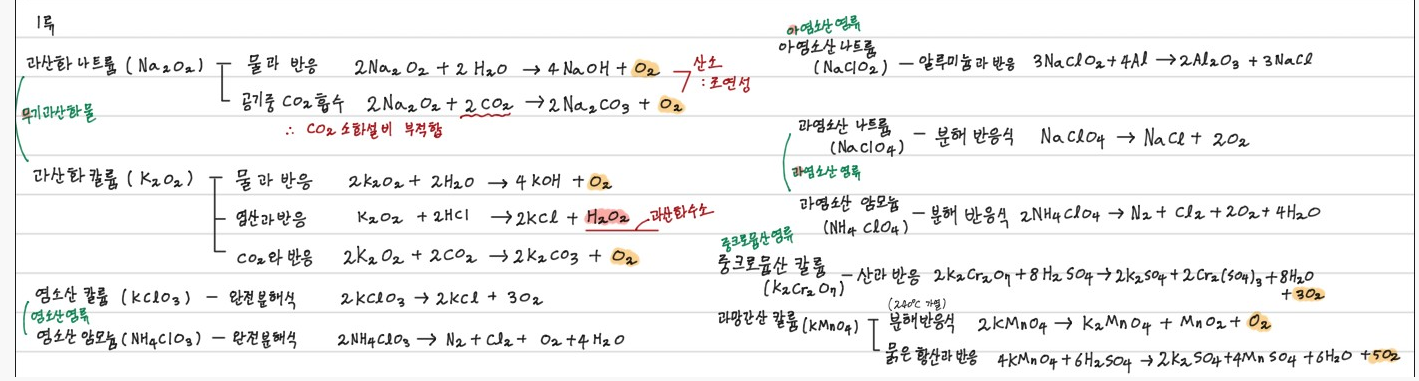 1류
과산화 나트륨 (Na₂O₂) 물과 반응 2Na₂O₂ + 2H₂O → 4NaOH + O₂
산소
: 조연성
공기중 CO₂ 흡수 2Na₂O₂ + 2CO₂ → 2Na₂CO₃ + O₂
∴ CO₂ 소화설비 부적합
무기과산화물
과산화 칼륨 (K₂O₂) 물과 반응 2K₂O₂ + 2H₂O → 4KOH + O₂
염산과 반응 K₂O₂ + 2HCl → 2KCl + H₂O₂
과산화수소
CO₂와 반응 2K₂O₂ + 2CO₂ → 2K₂CO₃ + O₂
염소산 칼륨 (KClO₃) - 완전분해식 2KClO₃ → 2KCl + 3O₂
염소산염류
염소산 암모늄 (NH₄ClO₃) - 완전분해식 2NH₄ClO₃ → N₂ + Cl₂ + O₂ + 4H₂O
아염소산 염류
아염소산 나트륨
(NaClO₂) - 알루미늄과 반응 3NaClO₂ + 4Al → 2Al₂O₃ + 3NaCl
과염소산 나트륨
(NaClO₄) - 분해 반응식 NaClO₄ → NaCl + 2O₂
과염소산 염류
과염소산 암모늄
(NH₄ClO₄) - 분해 반응식 2NH₄ClO₄ → N₂ + Cl₂ + 2O₂ + 4H₂O
중크로뮴산염류
중크로뮴산 칼륨
(K₂Cr₂O₇) - 산과 반응 2K₂Cr₂O₇ + 8H₂SO₄ → 2K₂SO₄ + 2Cr₂(SO₄)₃ + 8H₂O
+ 3O₂
(240℃ 가열)
과망간산 칼륨 (KMnO₄) 분해반응식 2KMnO₄ → K₂MnO₄ + MnO₂ + O₂
묽은 황산과 반응 4KMnO₄ + 6H₂SO₄ → 2K₂SO₄ + 4MnSO₄ + 6H₂O + 5O₂